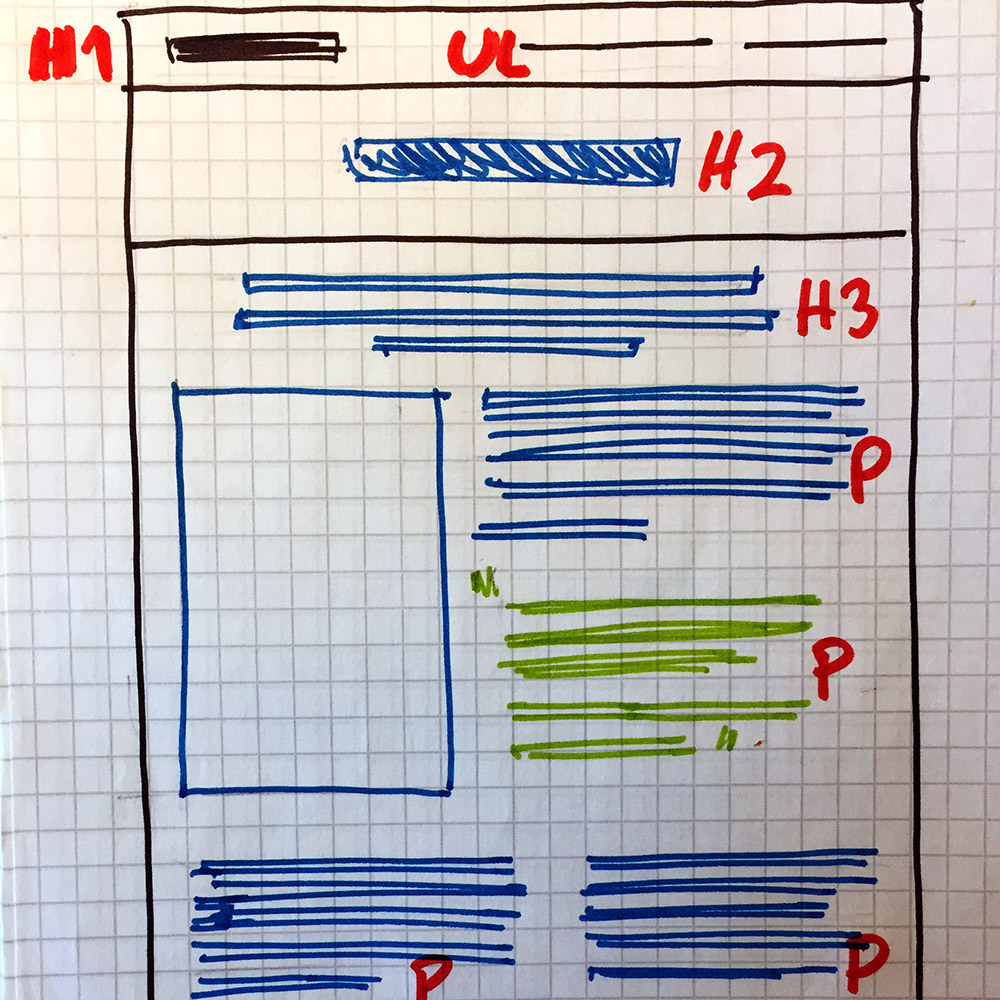 H1 UL
H2
H3
P
"
P
"
P P